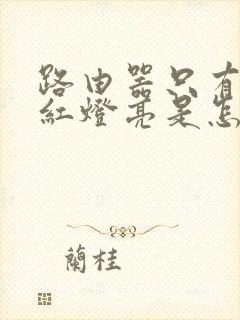 路由器只有
紅燈亮是怎
蘭桂